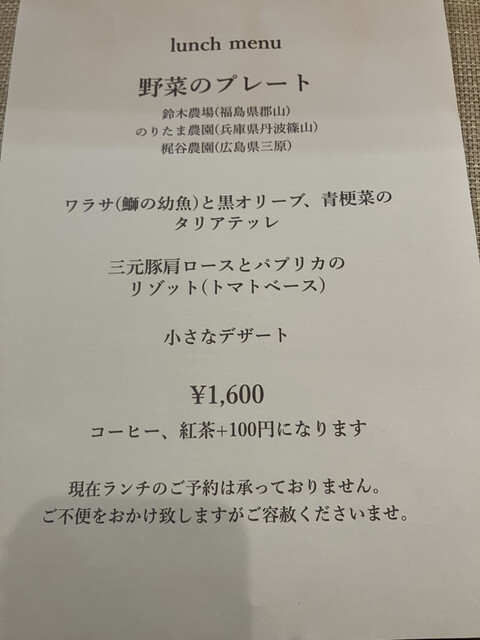 lunch menu
野菜のプレート
鈴木農場(福島県郡山)
のりたま農園(兵庫県丹波篠山)
梶谷農園(広島県三原)
ワラサ(鰤の幼魚)と黒オリーブ、青梗菜の
タリアテッレ
三元豚肩ロースとパプリカの
リゾット(トマトベース)
小さなデザート
¥1,600
コーヒー、紅茶+100円になります
現在ランチのご予約は承っておりません。
ご不便をおかけ致しますがご容赦くださいませ。